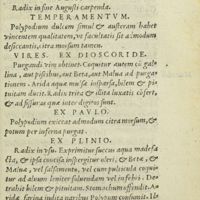 Radix in fine Augusti carpenda.
TEMPERAMENTVM.
Polypodium dulcem simul & austeram habet
vincentem qualitatem, ut facultatis sit admodum
desiccantis, citra morsum tamen.
VIRES. EX DIOSCORIDE.
Purgandi vim obtinet. Coquitur autem cũ galli
lina, aut piscibus, aut Beta, aut Malua ad purga
tionem. Arida aquæ mulsæ inspersa, bilem & pi
tuitam ducit. Radix trita & illita luxatis cõfert,
& ad fissuras quæ inter digitos sunt.
EX PAVLO.
Polypodium euiccat admodum citra morsum, &
potum per inferna purgat.
EX PLINIO.
Radix in usu. Exprimitur succus aqua madefa
cta, & ipsa concisa inspergitur oleri, & Betæ, &
Maluæ, vel salsamento, vel cum pulticula coqui
tur ad aluum leniter soluendam vel in febri. De
trahit bilem & pituitam. Stomachum offendit. Ari
dæ farina indita naribus Polypum consumit.